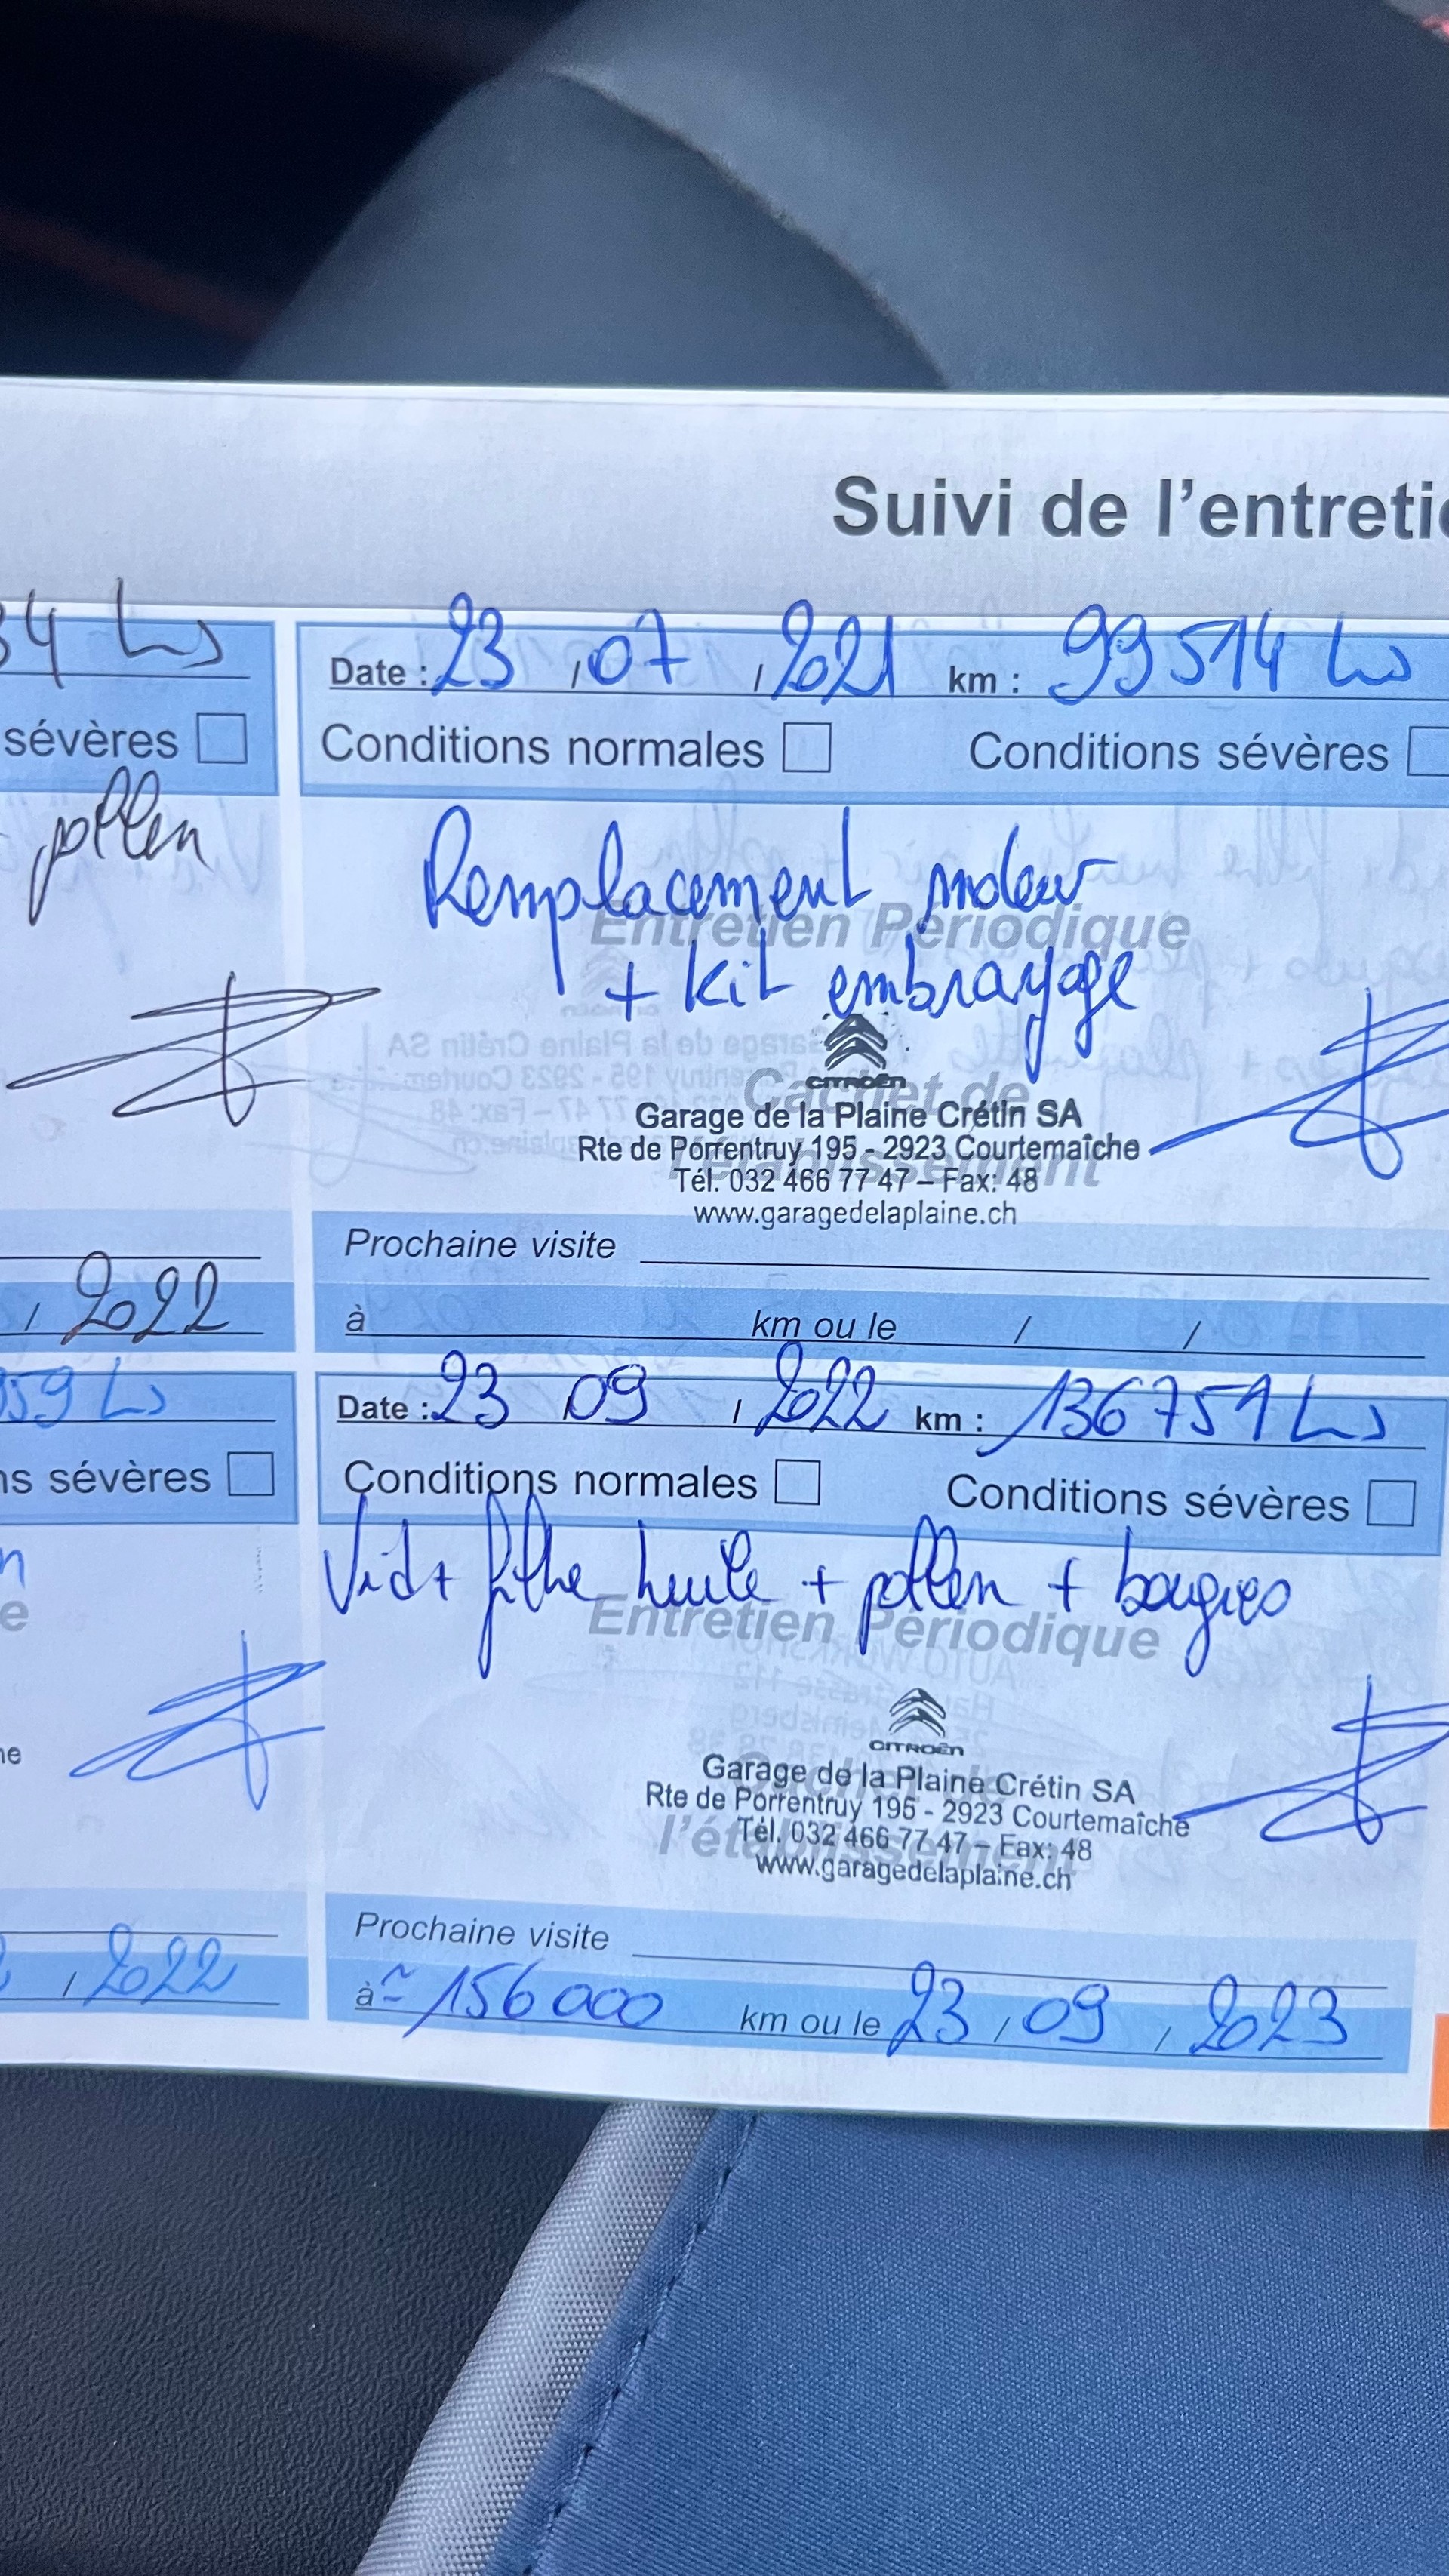 Suivi de l'entreti
34 km
sévères
pollen
2022
Date : 23 / 07 / 2021 km : 99514 km
Conditions normales Conditions sévères
Remplacement moteur
Entretien Périodique
+ kit embrayage
CITROËN
Cachet de
Garage de la Plaine Crétin SA
Rte de Porrentruy 195 - 2923 Courtemaîche
Tél. 032 466 77 47 – Fax: 48
www.garagedelaplaine.ch
Prochaine visite
à km ou le / /
59 km
ns sévères
n
e
ne
/ 2022
Date : 23 09 / 2022 km : 136751 km
Conditions normales Conditions sévères
Vid + filtre huile + pollen + bougies
Entretien Périodique
CITROËN
Garage de la Plaine Crétin SA
Rte de Porrentruy 195 - 2923 Courtemaîche
l'établissement
Tél. 032 466 77 47 – Fax: 48
www.garagedelaplaine.ch
Prochaine visite
à ~ 156000 km ou le 23 / 09 / 2023